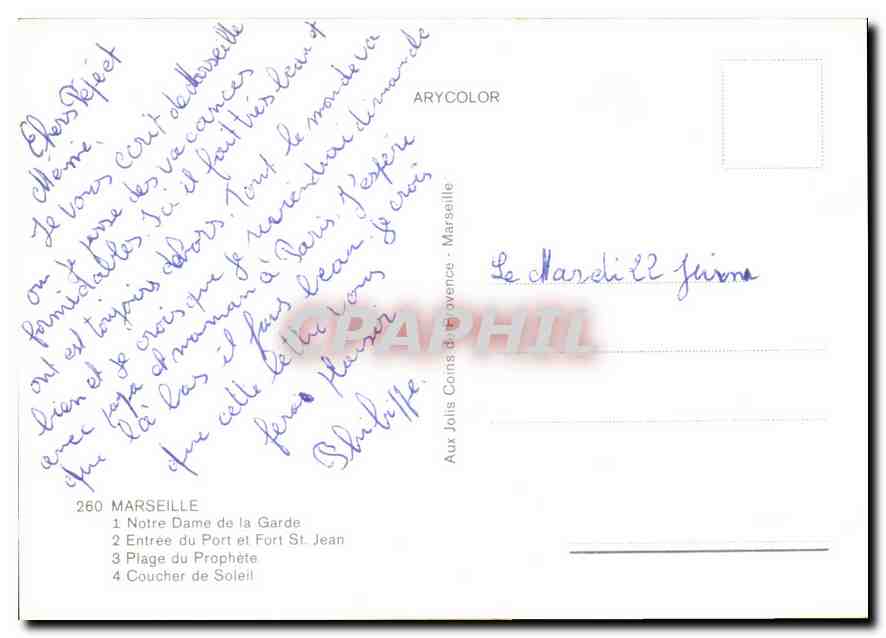 Chers Pépé et
Mémé.
Je vous écrit de Marseille
ou je passe des vacances
formidables. Ici il fait très beau et
ont est toujours dehors. Tout le monde va
bien et je crois que je reviendrai dimanche
avec papa et maman à Paris. J'espère
que là bas il fais beau. Je crois
que cette lettre vous
feras plaisir
Philippe.
ARYCOLOR
Aux Jolis Coins de Provence - Marseille
Le Mardi 22
CPAPHIL
260 MARSEILLE
1 Notre Dame de la Garde
2 Entrée du Port et Fort St. Jean
3 Plage du Prophète
4 Coucher de Soleil